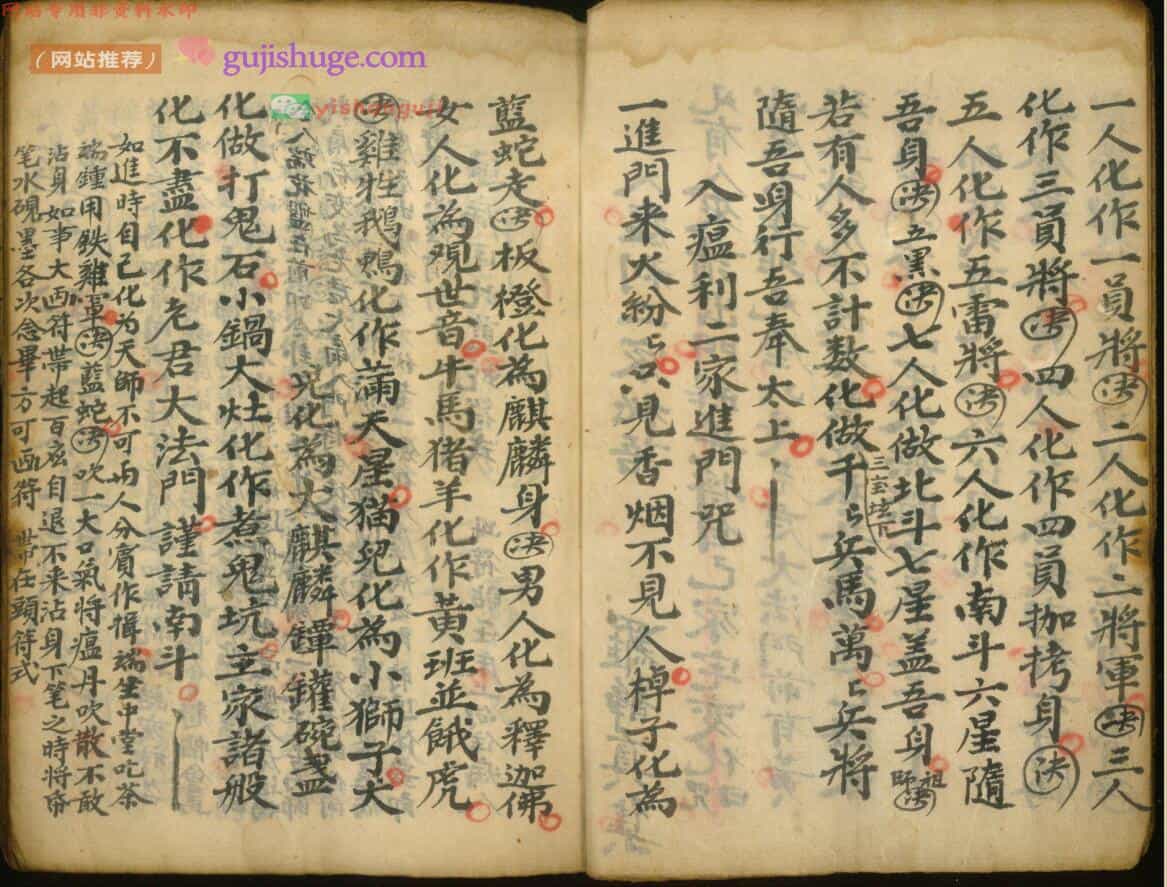 网站专属非资料水印
(网站推荐)
gujishuge.com
yishanguji
一人化作一員將(決)二人化作二將軍(決)三人
化作三員將(決)四人化作四員拁拷身(決)
五人化作五雷將(決)六人化作南斗六星隨
吾身(決)立黑(決)七人化做北斗七星盖吾身祖師(決)
若有人多不計数化做千〻兵馬萬〻兵將
隨吾身行吾奉太上
入瘟利二家進門咒
一進門来火紛〻只見香烟不見人棹子化為
藍蛇走(決)板橙化為麒麟身(決)男人化為釋迦佛
女人化為观世音牛馬猪羊化作黃班並餓虎
(決)雞牲我鴨化作滿天星猫兒化為小獅子犬
兒化為大麒麟鐔鑵碗盞
化做打鬼石小鍋大灶化作煮鬼坑主家諸般
化不盡化作老君大法門謹請南斗
如進時自己化为天師不可与人分賓作揖端坐中堂吃茶
端鍾用鉄雞罩(決)藍蛇(決)吹一大口氣将瘟丹吹散不敢
沾身如事大画符帶起百病自退不来沾身下笔之時將帝
笔水硯墨各次念畢方可画符帶在頭符式